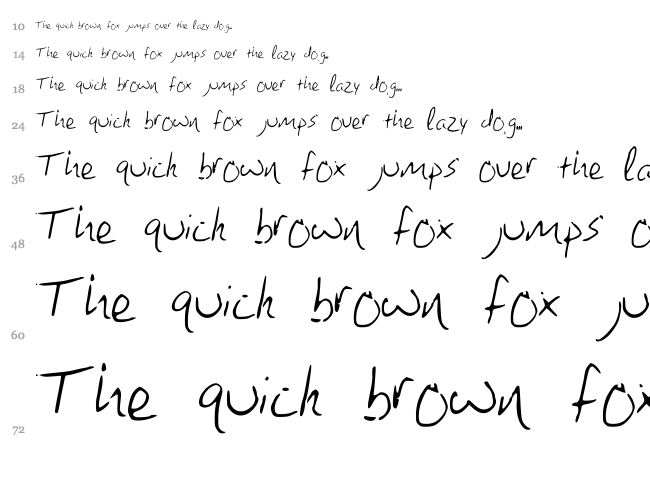 10 The quick brown fox jumps over the lazy dog...
14 The quick brown fox jumps over the lazy dog...
18 The quick brown fox jumps over the lazy dog...
24 The quick brown fox jumps over the lazy dog...
36 The quick brown fox jumps over the la
48 The quick brown fox jumps o
60 The quick brown fox ju
72 The quick brown fox